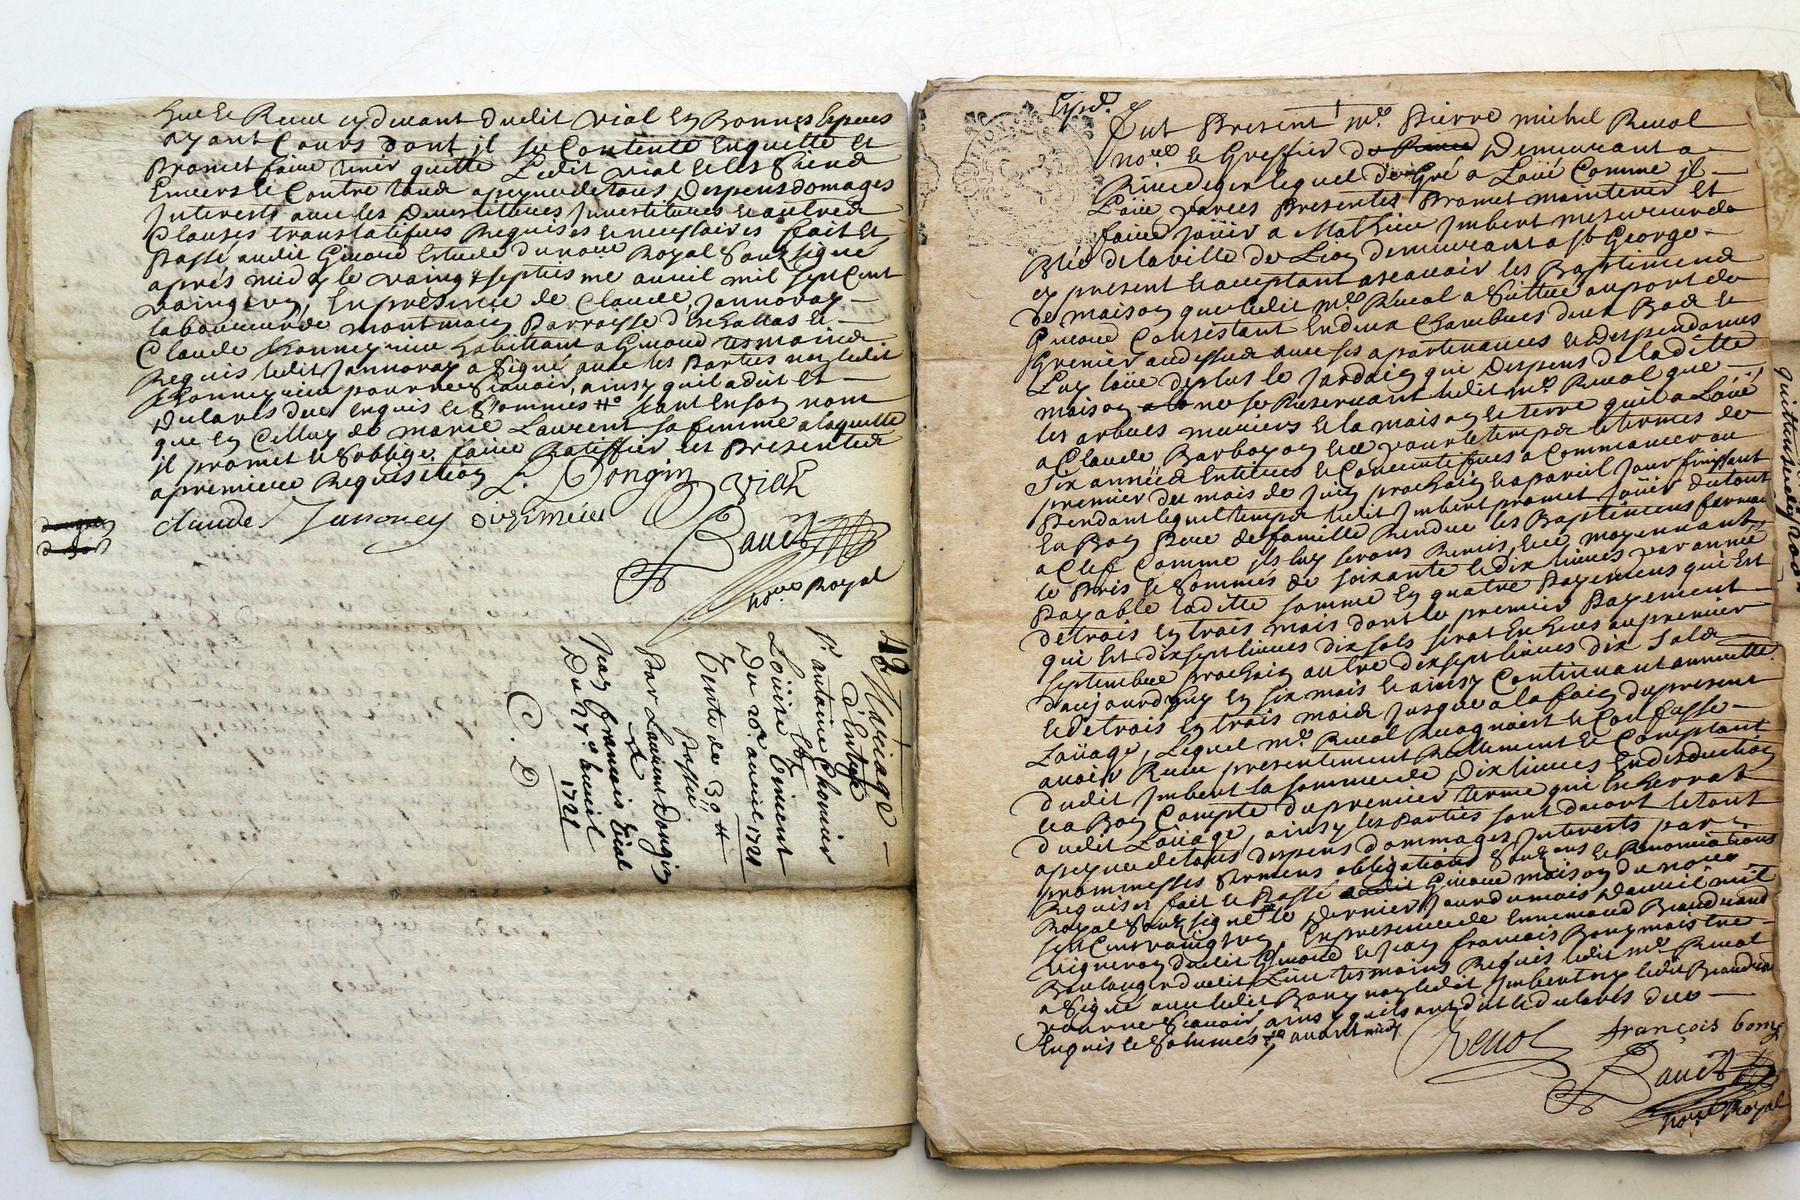 que Reçu cy devant dudit vial En Bonnes Especes
ayant Cours dont il se Contente Enquitte Et
Promet faire tenir quitte Ledit vial Et les Siens
Envers Et Contre tous a peyne de tous Despens domages
Interests avec les Devestitures Investitures Et autres
Clauses translatifves Requises Et necessaires fait Et
Passé audit Givors Estude du no.re Royal Soussigné
aprés midy le vaingt septiesme avril mil sept Cent
vaingt un, En presence de Claude Jannoray
laboureur de montmain Parroisse d'Eschallas Et
Claude habittant a Givors tesmoins
Requis ledit Jannoray a Signé avec les Parties non ledit
pour ne Scavoir, ainsy qu'il a dit Et
Declaré de ce Enquis Et Sommés tant En son nom
que En Celluy de marie Laurent sa femme a laquelle
il promet Et S'oblige faire Ratiffier les Presentes
a premiere Requisition L. Dongin vial
claude Janorey
Bauet
no.re Royal
43
Mariage
d'Entre
S.r antoine Chomier
Et
Loüise Timent
Du avril 1721
Vente de 30 ₶
Passée
Par Laurent Dongin
a
Jean francois Vial
Du 27.e avril
1721
C. D
Exp.é
Fut Present m.e Pierre michel Revol
no.re Et Greffier de Demeurant a
Rivedegier lequel de Gré a Loüé Comme il
Loüe par ces Presentes Promet maintenir Et
faire Joüir a Mathieu Imbert mesureur de
Bléd de la ville de Lion demeurant a St George
cy present Et acceptant ascavoir les Baptimens
de maison que ledit m.e Revol a Scittué au port de
Givors Consistant En deux Chambres deux Bas Et
Grenier au dessus avec ses apartenances Et despendances
Luy loüe de plus le Jardain qui Despens de la ditte
maison ne se Reservant ledit m.e Revol que
les arbres muriers Et la maison Et terre qu'il a Loüé
a Claude Barbayon Et ce pour le temps Et termes de
Six années Entières Et Consecutifves a Commancer au
premier du mois de Juin prochain Et a pareil Jour finissant
Pendant lequel temps ledit Imbert promet Joüir du tout
En Bon Pere de famille Rendre les Baptimens fermés
a Clef Comme ils luy seront Remis, Et ce moyennant
le Pris Et Sommes de soixante Et dix livres par année
Payable laditte somme En quatre Payemens qui Est
de trois En trois mois dont le premier Payement
qui Est dix sept livres dix sols sera En au premier
septembre prochain autre dix sept livres dix Sols
d'aujourdhuy En six mois Et ainsy Continuant
Et de trois En trois mois Jusque a la fain du present
Loüage, Lequel m.e Revol Reconnoist Et Confesse
avoir Reçu presentement Rellement Et Comptant
dudit Imbert la somme de Dix livres En desduction
Et a Bon Compte du premier terme qui Escherrat
dudit Loüage, ainsy les Parties sont dacort Et tout
a peyne de tous despens dommages Interests par
prommesses Sermens obligations Et Renonciations
Requises fait Et Passé Givors maison du no.re
Royal Soussigné le Dernier Jour du mois Davril mil
sept Cent vaingt un, En presence de Ennemond Brandinand
vigneron dudit Givors Et Jean francois Bony maistre
Boulanger dudit Lieu tesmoins Requis ledit m.e Revol
a Signé avec ledit Bony non ledit Imbert ny ledit Brandinand
pour ne Scavoir ainsy qu'ils ont dit Et declaré de ce
Enquis Et Sommés avant midy
Revol
françois bony
Bauet
no.re Royal